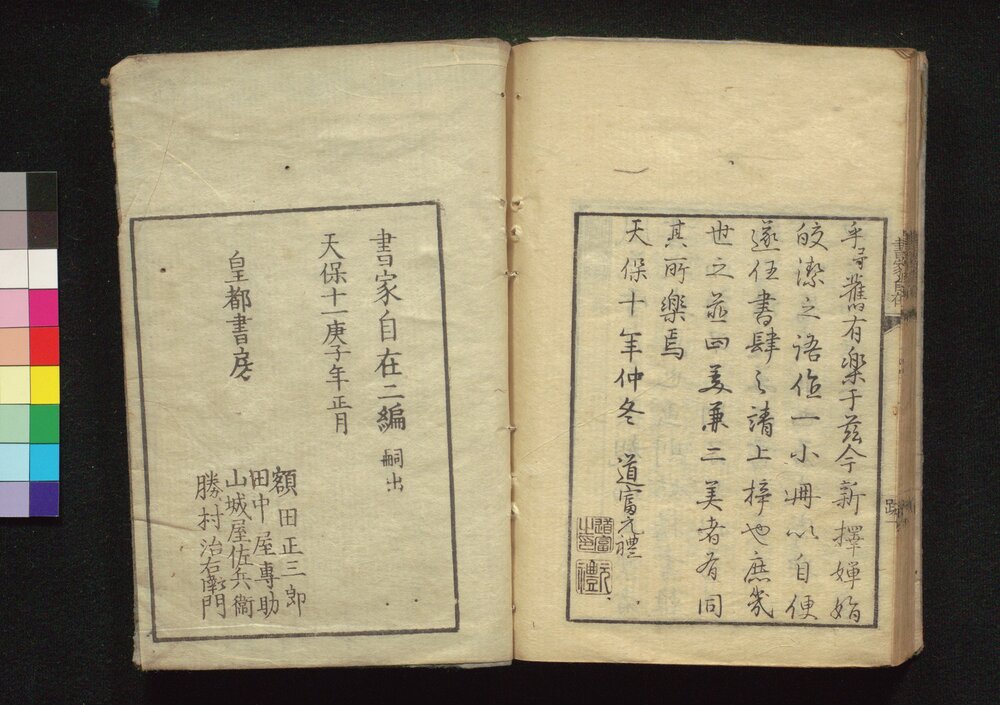 余寻舊有樂于茲今新擇嬋娟
皎潔之語作一小冊以自便
遂任書肆之請上梓也庶幾
世之並回美兼二美者有同
其所樂焉
天保十年仲冬 道富元禮
道富
之印
元禮
書家自在
跋
書家自在二編 嗣出
天保十一庚子年正月
皇都書房
額田正三郎
田中屋專助
山城屋佐兵衞
勝村治右衛門